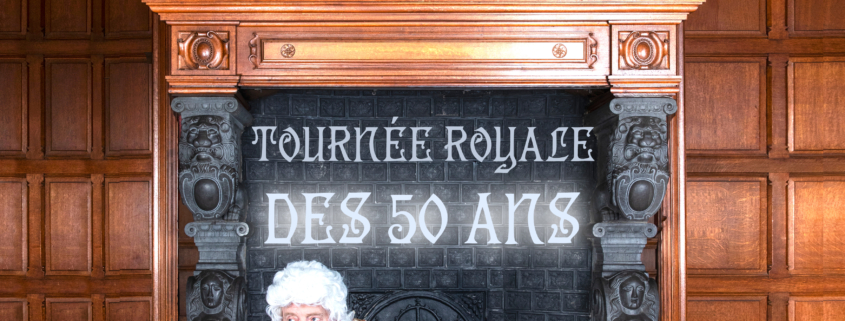 TOURNÉE ROYALE
DES 50 ANS